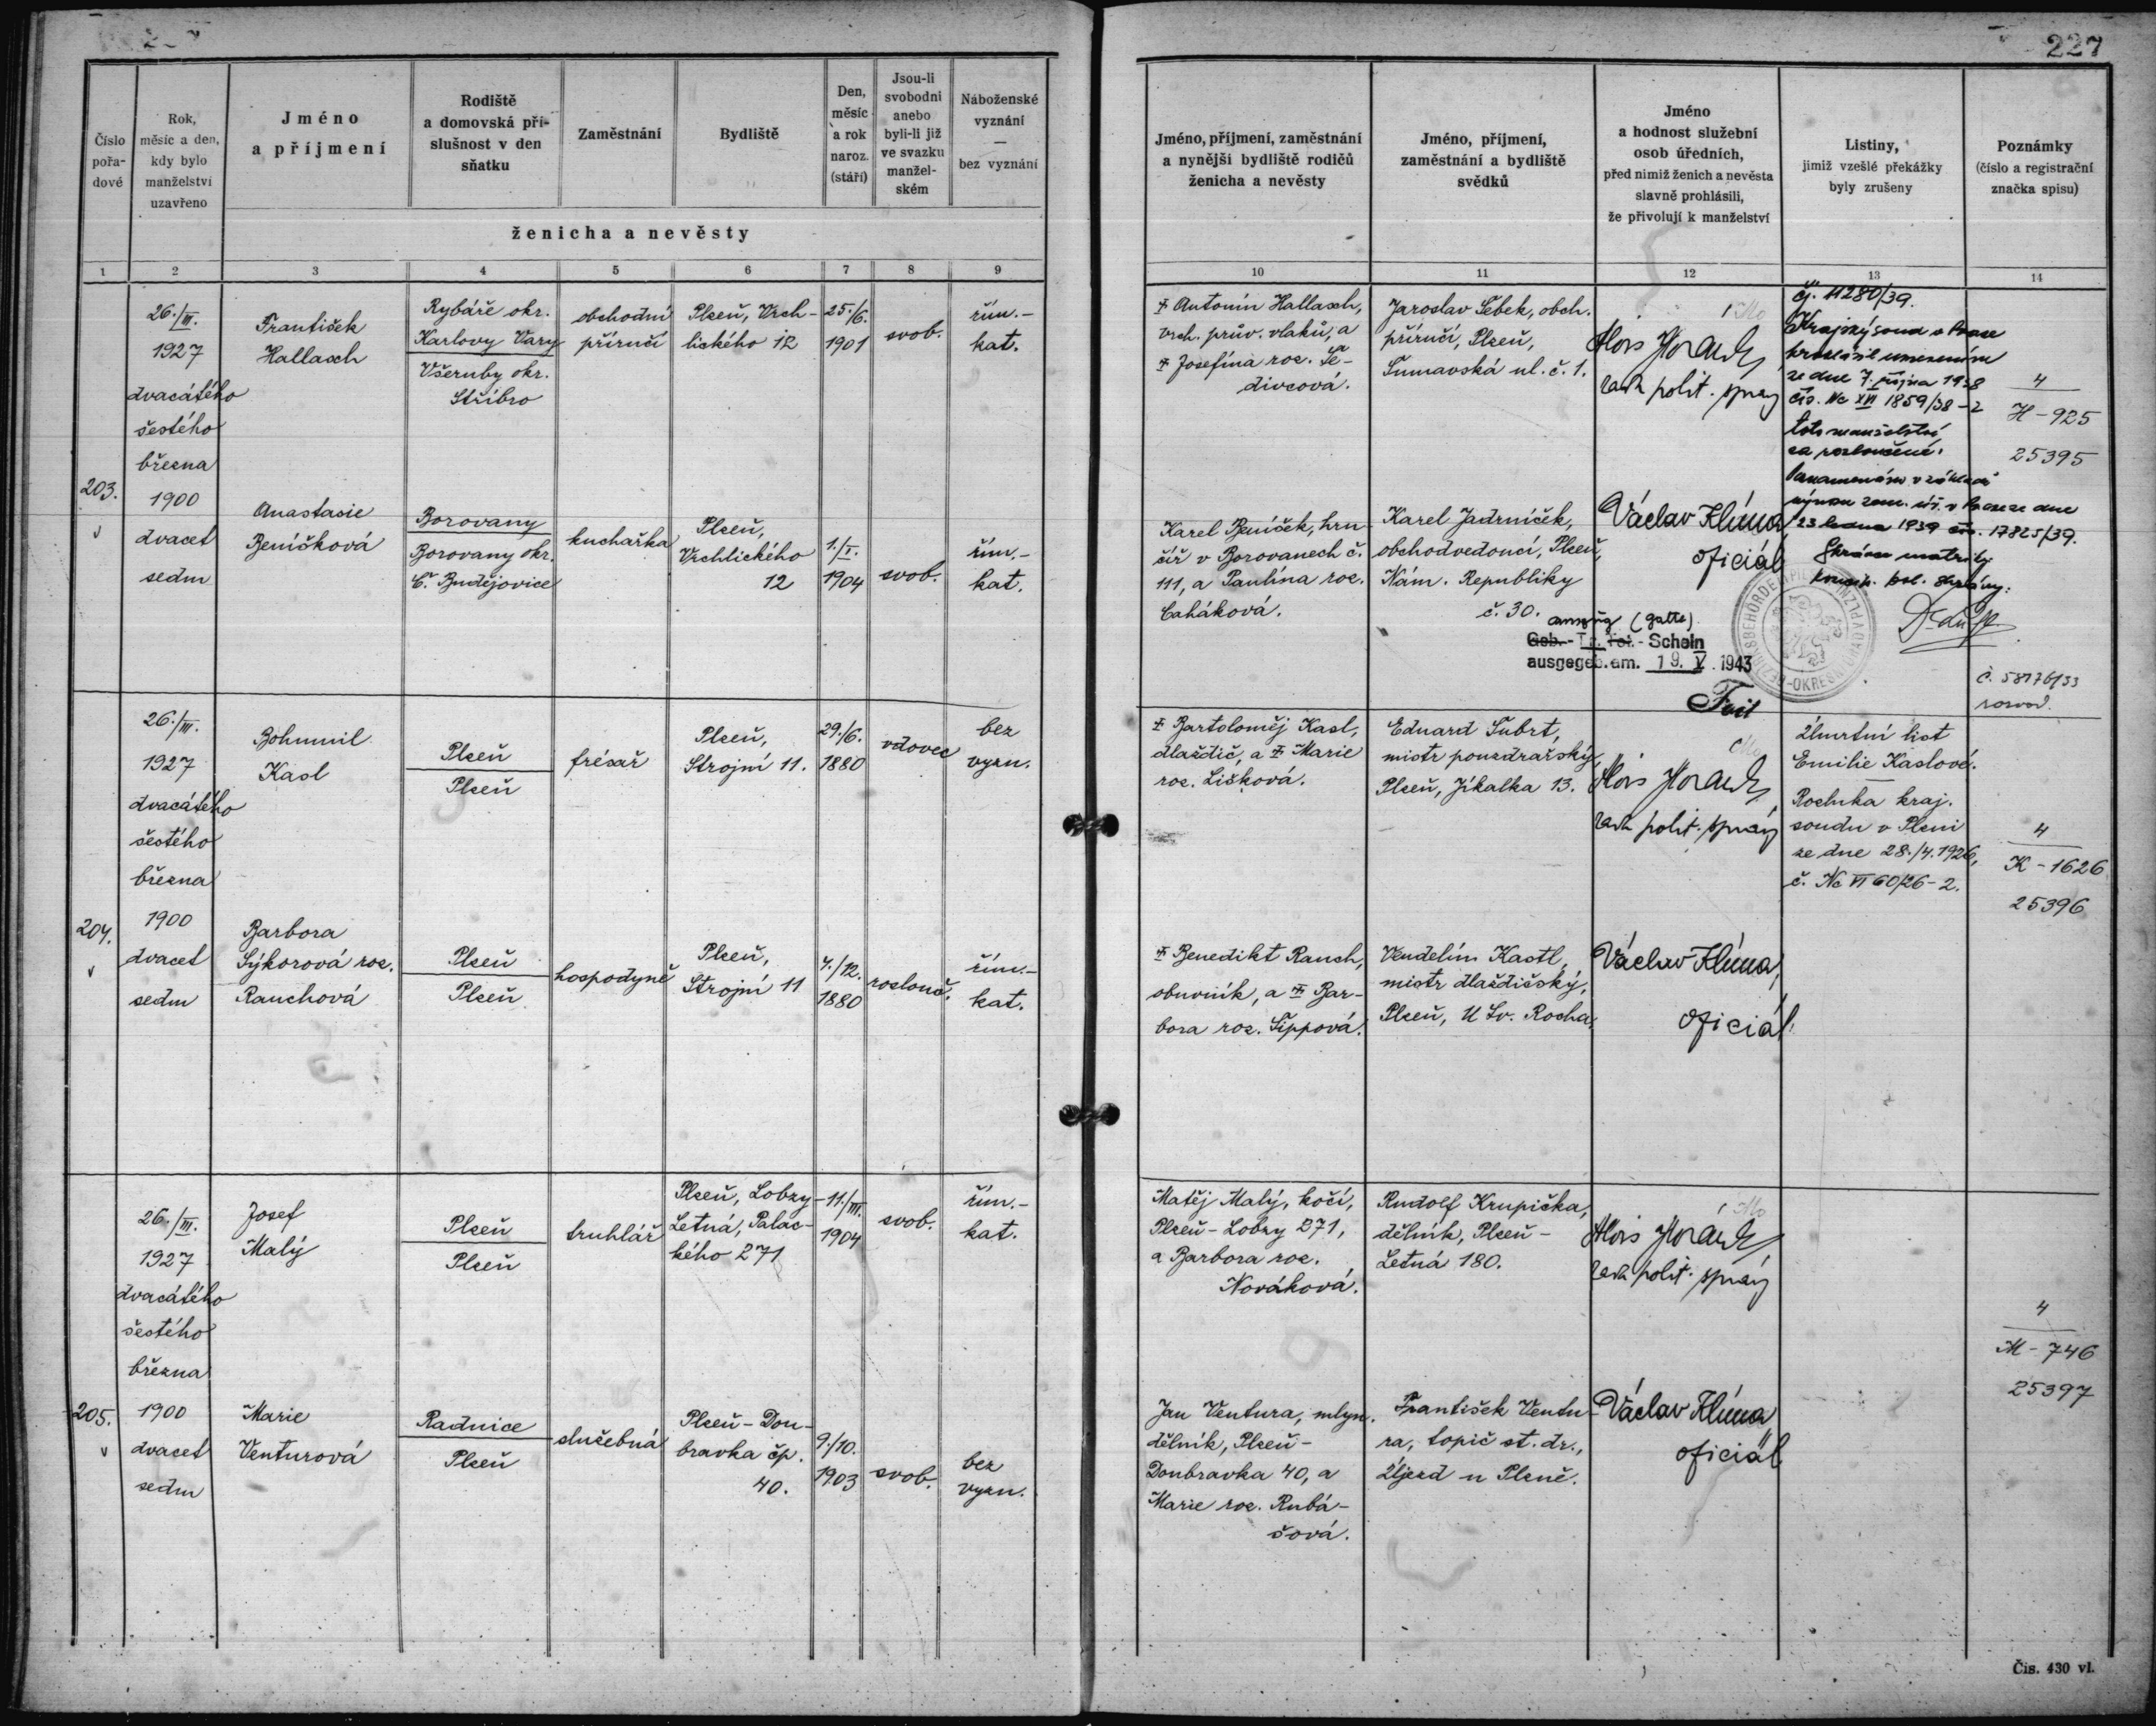 227
Číslo
pořa-
dové
Rok,
měsíc a den,
kdy bylo
manželství
uzavřeno
Jméno
a příjmení
Rodiště
a domovská pří-
slušnost v den
sňatku
Zaměstnání
Bydliště
Den,
měsíc
a rok
naroz.
(stáří)
Jsou-li
svobodni
anebo
byli-li již
ve svazku
manžel-
ském
Náboženské
vyznání
—
bez vyznání
ženicha a nevěsty
Jméno, příjmení, zaměstnání
a nynější bydliště rodičů
ženicha a nevěsty
Jméno, příjmení,
zaměstnání a bydliště
svědků
Jméno
a hodnost služební
osob úředních,
před nimiž ženich a nevěsta
slavně prohlásili,
že přivolují k manželství
Listiny,
jimiž vzešlé překážky
byly zrušeny
Poznámky
(číslo a registrační
značka spisu)
1 2 3 4 5 6 7 8 9 10 11 12 13 14
203.
26./III.
1927
dvacátého
šestého
března
1900
dvacet
sedm
František
Hallasch
Rybáře okr.
Karlovy Vary
Všeruby okr.
Stříbro
obchodní
příručí
Plzeň, Vrch-
lického 12
25./6.
1901
svob.
řím.-
kat.
Anastasie
Beníšková
Borovany
Borovany okr.
Č. Budějovice
kuchařka
Plzeň,
Vrchlického
12
1./I.
1904
svob.
řím.-
kat.
Antonín Hallasch,
vrch. prův. vlaků, a
Josefina roz. Še-
divcová.
Jaroslav Šebek, obch.
příručí, Plzeň,
Šumavská ul. č. 1.
Alois Horack
rada polit. správy
čj. 11280/39.
Krajský soud v Praze
prohlásil usnesením
ze dne 7. října 1938
čís. Nc XVI 1859/38-2
toto manželství
za rozloučené.
Zaznamenáno v základě
výnosu zem. úř. v Praze ze dne
23 ledna 1939 čís. 17825/39.
Správce matriky
komis. pol. správy:
4
H-925
25395
Karel Beníšek, hrn-
číř v Borovanech č.
111, a Paulína roz.
Caháková.
Karel Jadrníček,
obchodvedoucí, Plzeň,
Nám. Republiky
č. 30.
Václav Klíma,
oficiál
auszug (gatte)
Geb.- Tr. Tot.- Schein
ausgegeb. am. 19. V. 1943
BEZIRKSBEHÖRDE
č. 58176/33
rozvod.
204.
26./III.
1927
dvacátého
šestého
března
1900
dvacet
sedm
Bohumil
Kasl
Plzeň
Plzeň
frézař
Plzeň,
Strojní 11.
29./6.
1880
vdovec
bez
vyzn.
Barbora
Sýkorová roz.
Rauchová
Plzeň
Plzeň
hospodyně
Plzeň,
Strojní 11
4./12.
1880
rozlouč.
řím.-
kat.
Bartoloměj Kasl,
dlaždič, a Marie
roz. Lišková.
Eduard Šubrt,
mistr pouzdrařský,
Plzeň, Jíkalka 13.
Alois Horack
rada polit. správy
Úmrtní list
Emilie Kaslové.
Rozluka kraj.
soudu v Plzni
ze dne 28./4. 1926,
č. Nc VI 60/26-2.
4
K-1626
25396
Benedikt Rauch,
obuvník, a Bar-
bora roz. Šippová.
Vendelín Kastl,
mistr dlaždičský,
Plzeň, U Sv. Rocha.
Václav Klíma,
oficiál
205.
26./III.
1927
dvacátého
šestého
března
1900
dvacet
sedm
Josef
Malý
Plzeň
Plzeň
truhlář
Plzeň, Lobzy-
Letná, Palac-
kého 271
11./III.
1904
svob.
řím.-
kat.
Marie
Venturová
Radnice
Plzeň
služebná
Plzeň-Dou-
bravka čp.
40.
9./10.
1903
svob.
bez
vyzn.
Matěj Malý, kočí,
Plzeň-Lobzy 271,
a Barbora roz.
Nováková.
Rudolf Krupička,
dělník, Plzeň-
Letná 180.
Alois Horack
rada polit. správy
4
M-746
25397
Jan Ventura, mlyn.
dělník, Plzeň-
Doubravka 40, a
Marie roz. Rubá-
šová.
František Ventu-
ra, topič st. dr.,
Újezd u Plzně.
Václav Klíma,
oficiál
Čís. 430 vl.